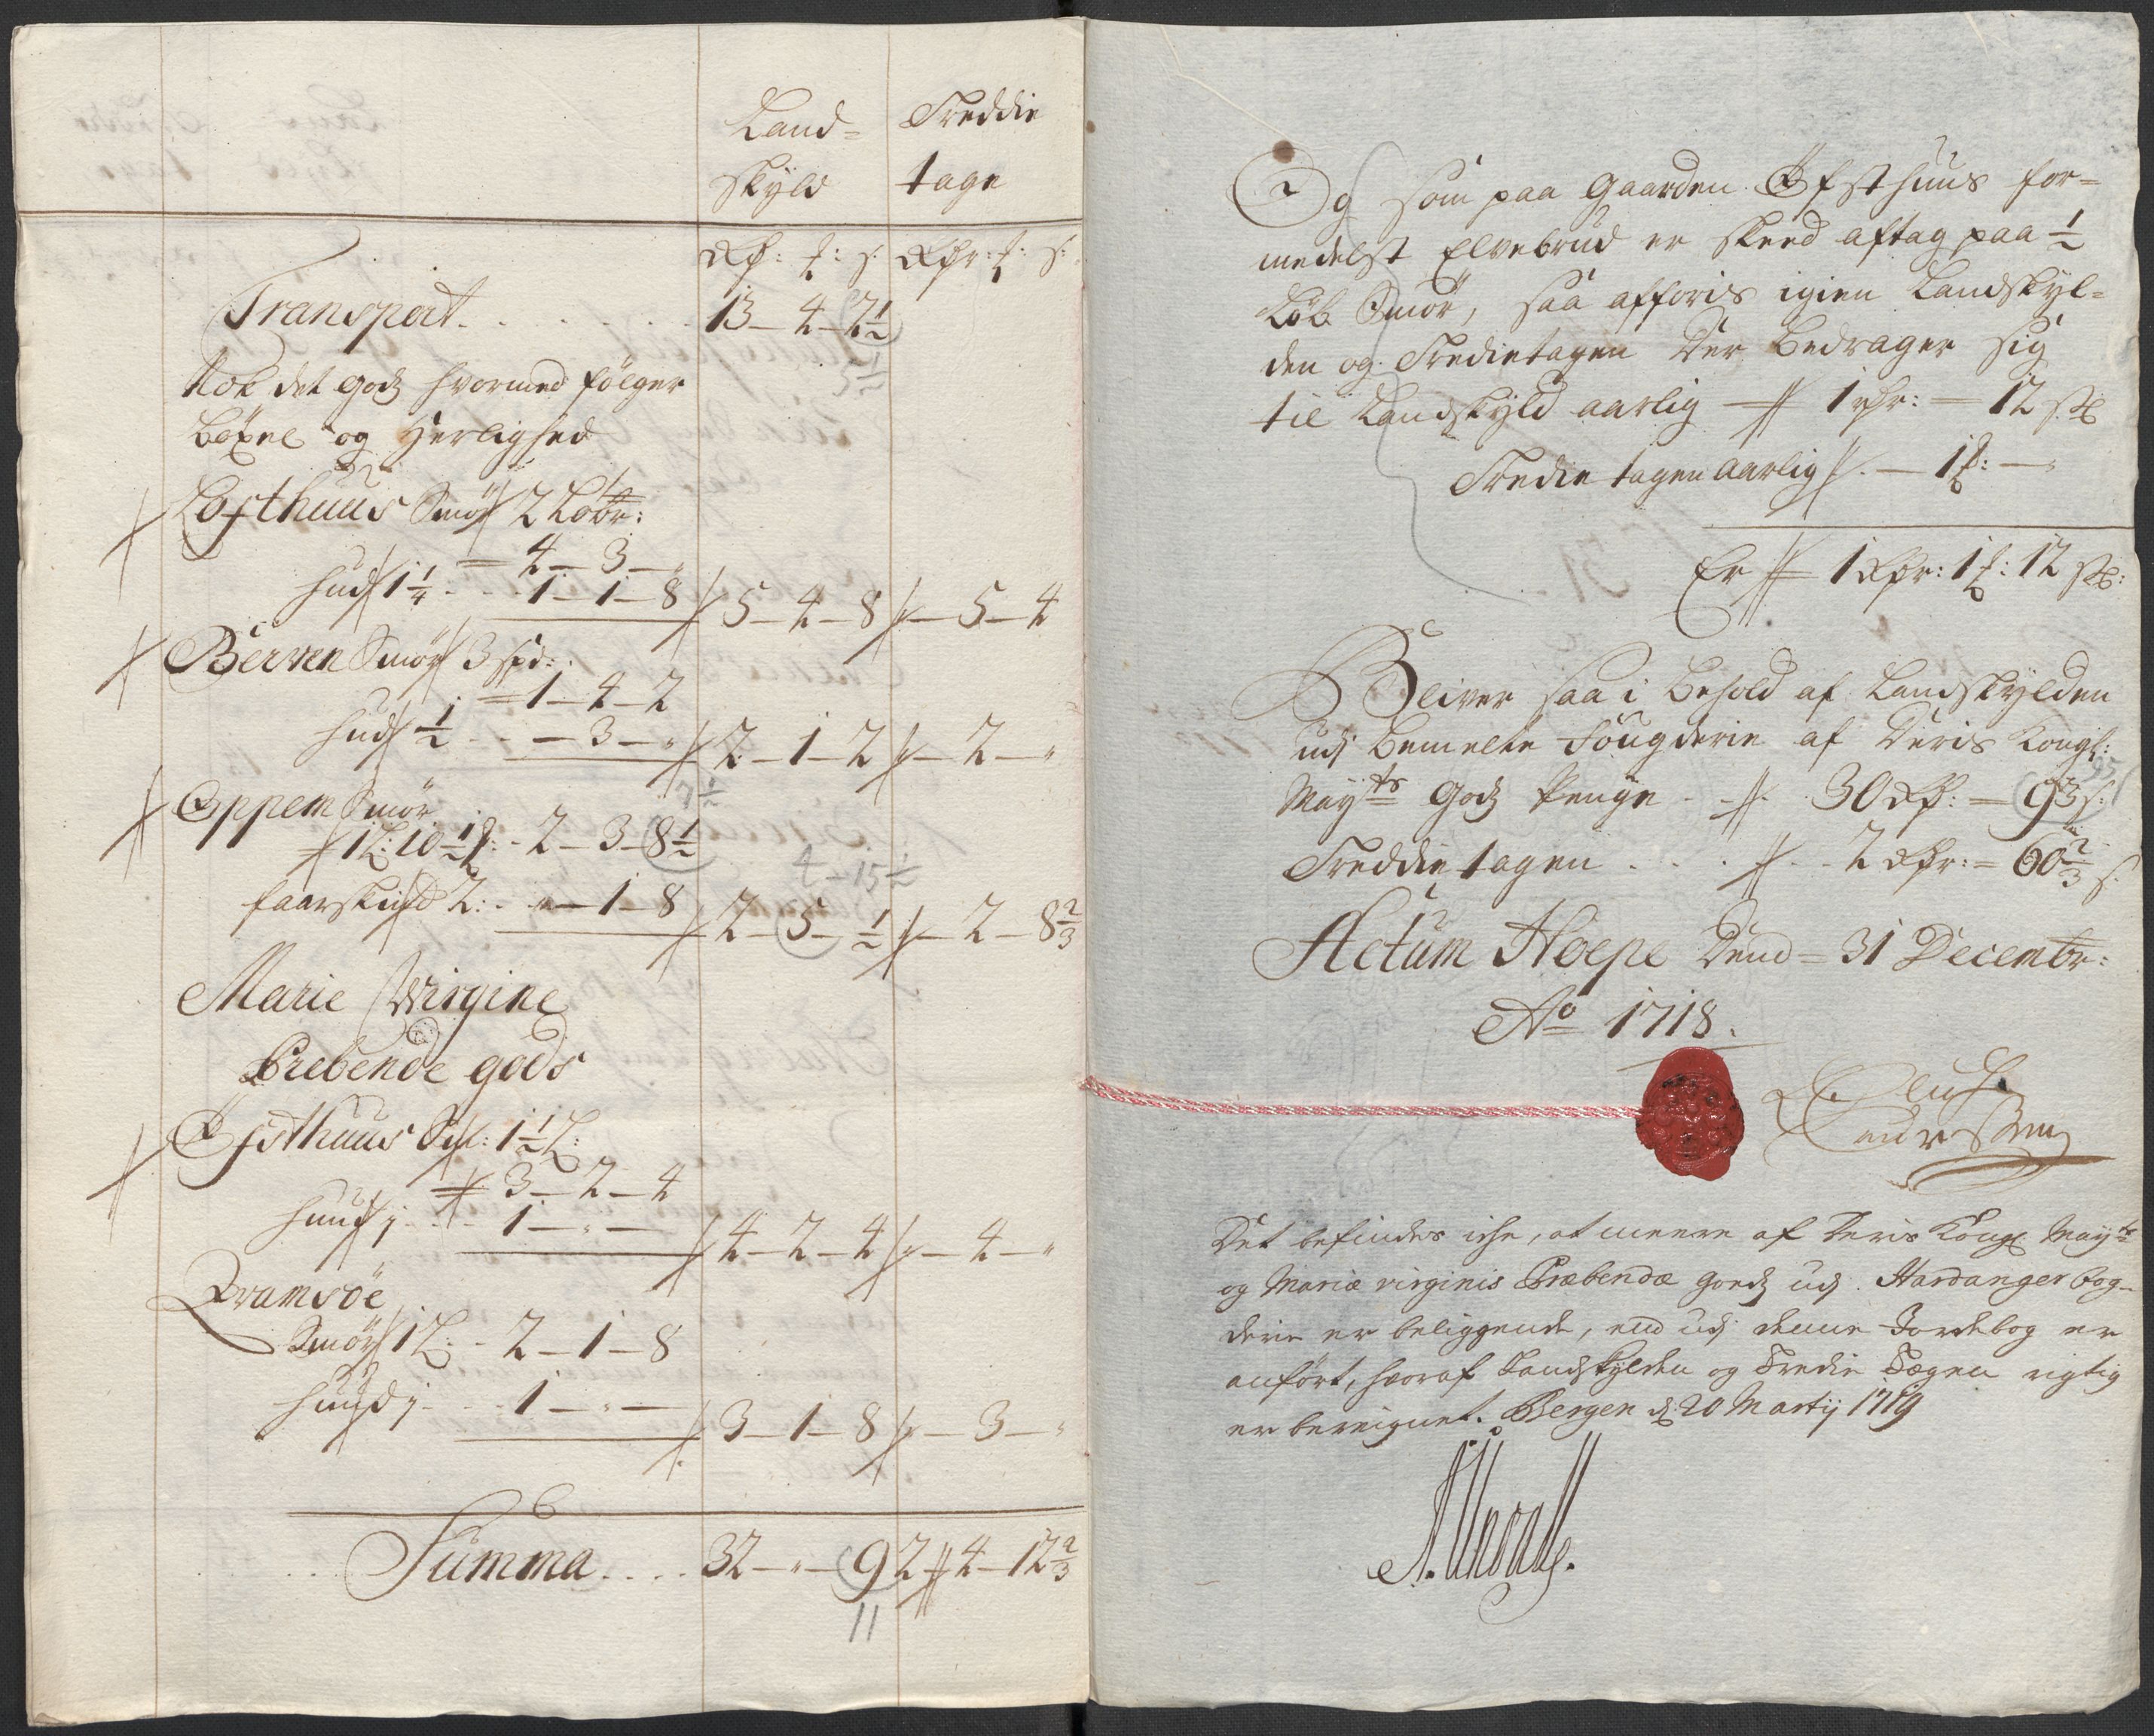 Land= Treddie
skyld tage
Rdr: ₰: s: Rdr: ₰: s:
Transport. . . . . . 13_4_2½
Nok det godz hvormed følger
Böxel og Herlighed
Lofthuus Smør 2 Löbr:
= 4_3_„
hud 1¼ . . . 1_1_8 5_4_8 _5_4
Berven Smør 3 spd:
= 1_4_2
hud ½ . . _3_„ 2_1_2 _2_„
Oppem Smør
1 L: 10½ ₰: - 2_3_8½
4_15½
faarskind 2: . „_1_8 2_5_½ _2_8⅔
Marie Wirgine
Prebende gods
Ofsthuus Sm: 1½ L:
3_2_4
huud j . . . 1_„_ 4_2_4 _4_„
Qvamsöe
Smør 1 L: - 2_1_8
huud j . . . 1_„_ 3_1_8 _3_„
Summa . . . . 32_„_9 2_4_12⅔
11
Og som paa Gaarden Ofsthuus for=
medelst Elvebrud er skeed aftag paa ½
Löb Smör, saa afføris igien Landskyl=
den og Tredietagen Der bedrager sig
til Landskyld aarlig 1 rdr: = 12 s
Tredie tagen aarlig . _ 1 ₰: _ „
Er 1 Rdr: 1 ₰: 12 s:
Bliver saa i behold af Landskylden
udj bemelte Fougderie af Deris Kongl:
Mayts Godz Penge - . 30 Rdr: = 93 s:
95
Treddie tagen . . . . 2 Rdr: = 60⅔ s.
Actum Hoepe Dend = 31 Decembr:
Ao 1718.
Det befindes iche, at meere af Deris Kongl Mayts
og Mariæ virginis Præbendæ Goedz udj Hardanger fog-
derie er beliggende, end udj denne Jordebog er
anført, hvoraf Landskylden og Tredie Tagen rigtig
er bereignet. Bergen d: 20 Martij 1719